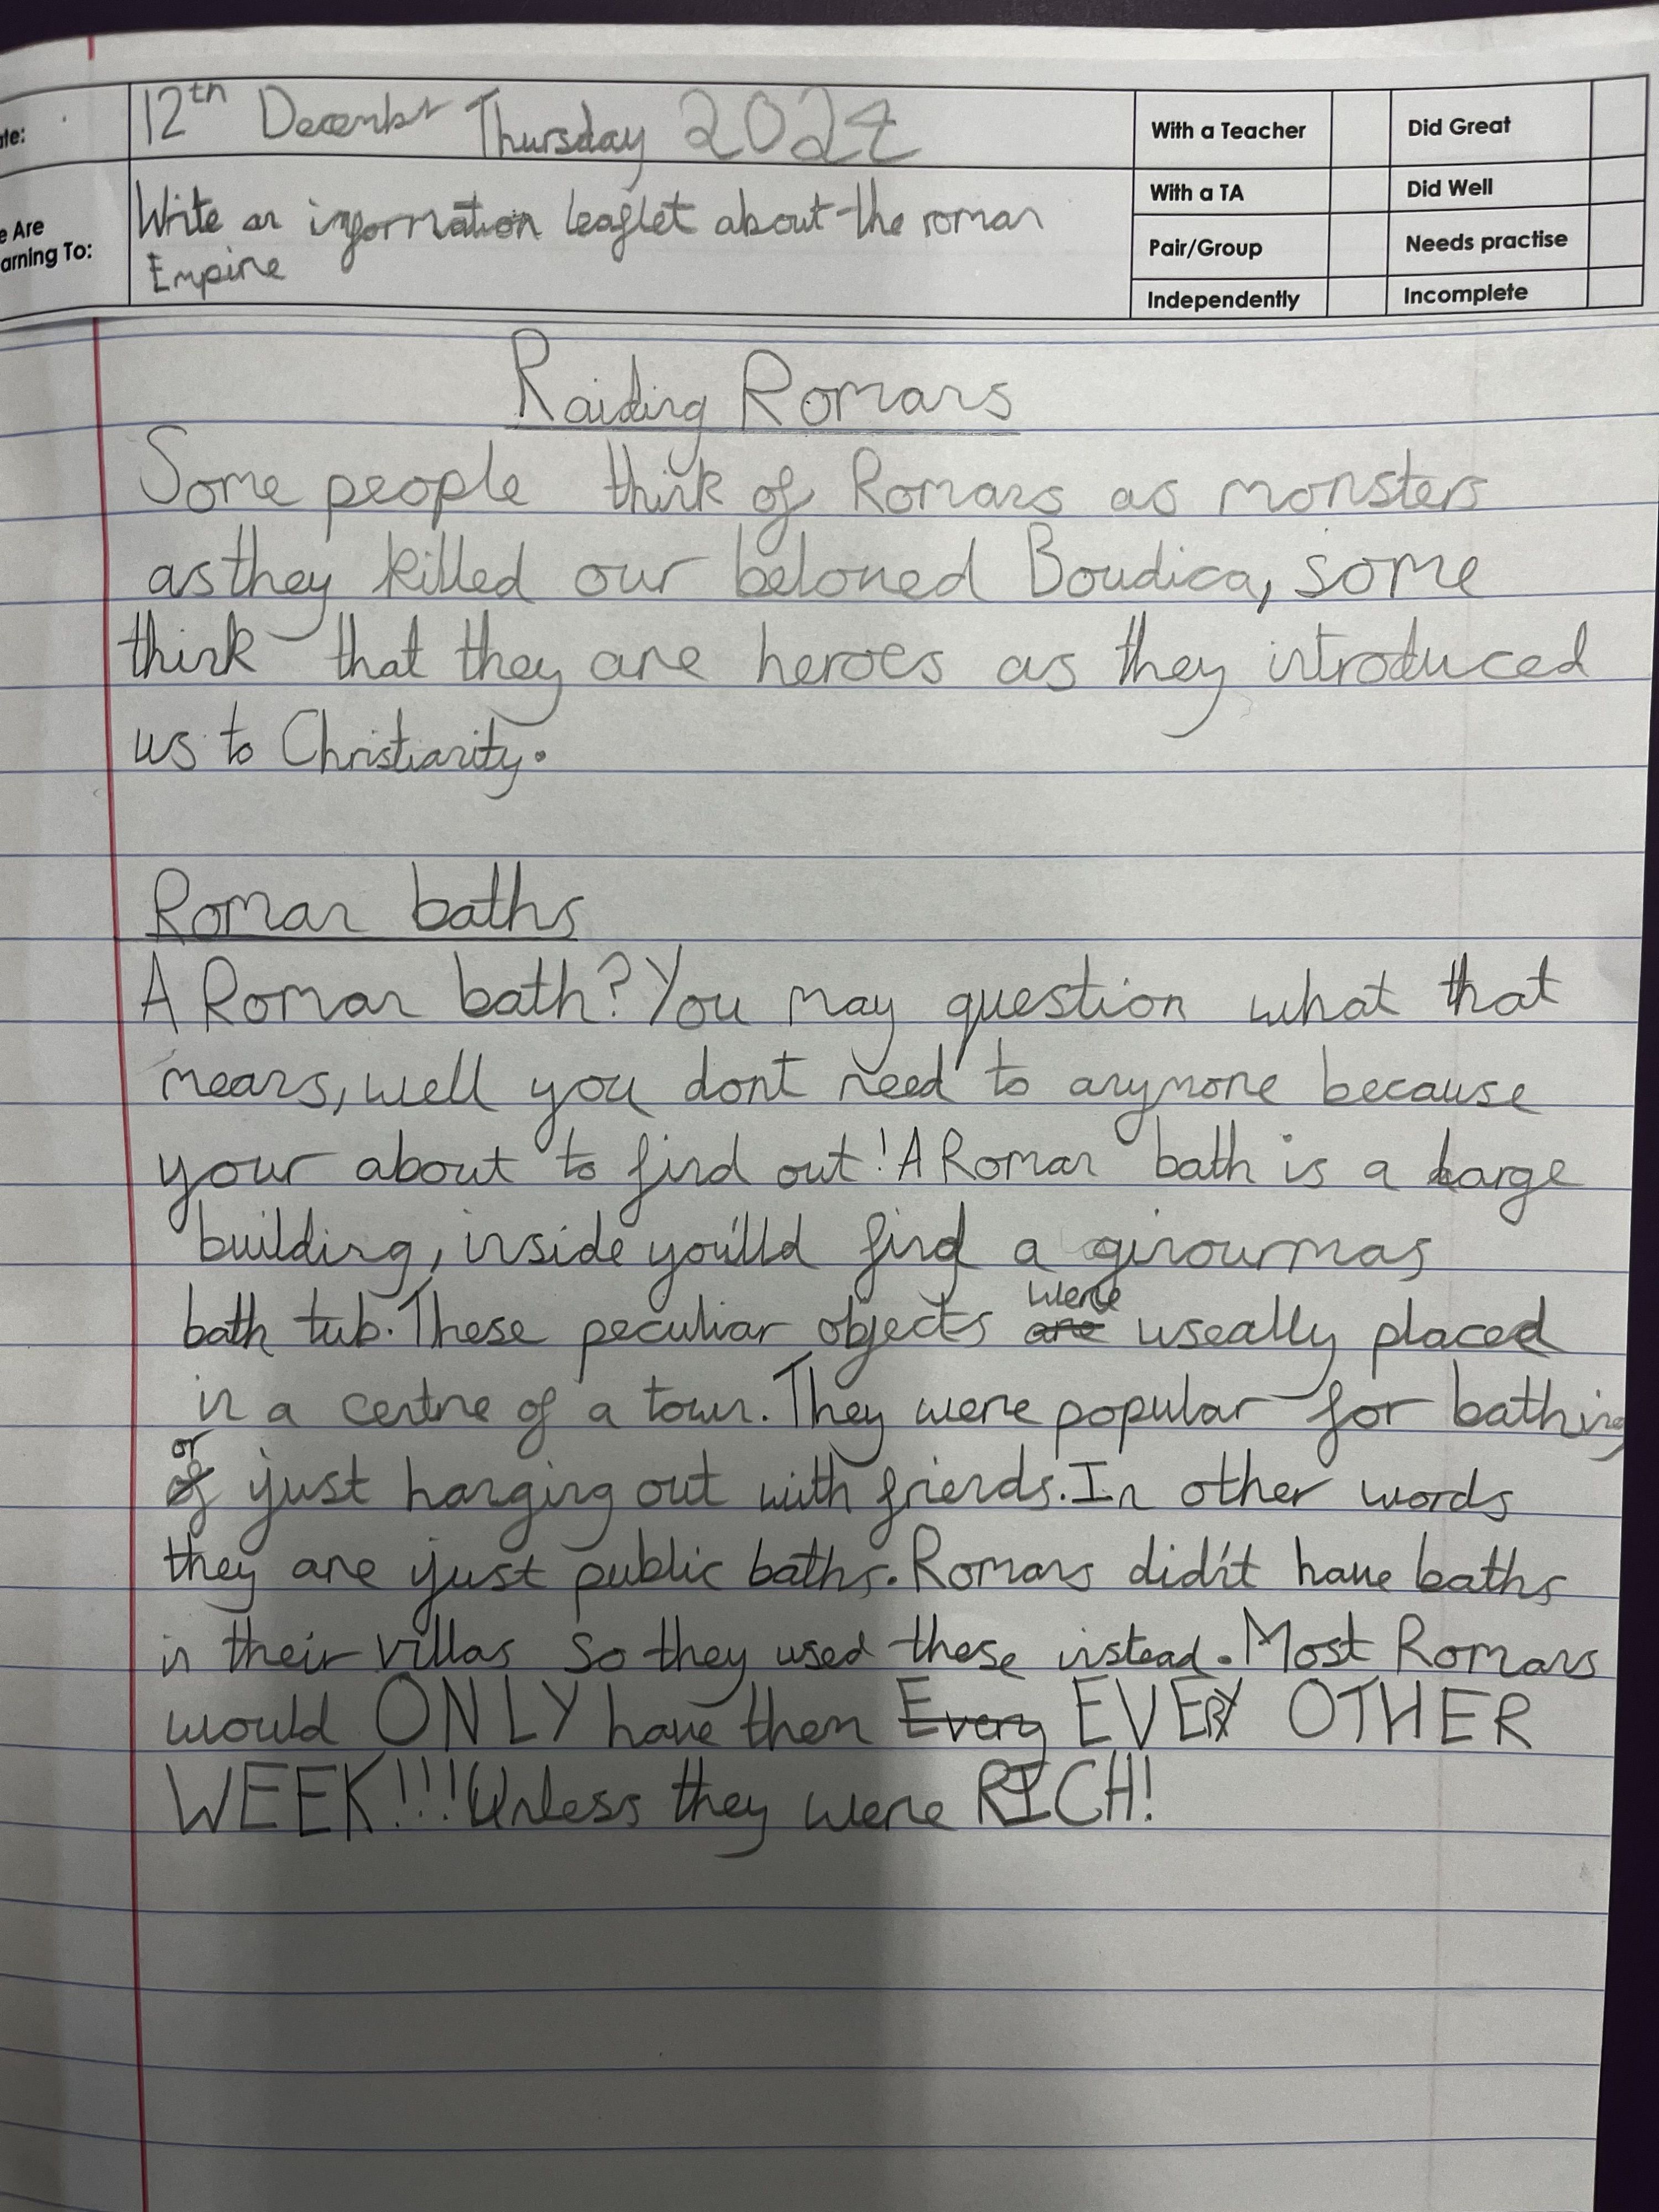 ate: 12th December Thursday 2024 With a Teacher Did Great
With a TA Did Well
e Are arning To: Write an information leaflet about the roman
Empire Pair/Group Needs practise
Independently Incomplete
Raiding Romans
Some people think of Romans as monsters
as they killed our beloved Boudica, some
think that they are heroes as they introduced
us to Christianity.
Roman baths
A Roman bath? You may question what that
means, well you dont need to anymore because
your about to find out! A Roman bath is a large
building, inside you'lld find a ginourmas
bath tub. These peculiar objects are were useally placed
in a centre of a town. They were popular for bathing
of or just hanging out with friends. In other words
they are just public baths. Romans did'nt have baths
in their villas so they used these instead. Most Romans
would ONLY have them Every EVERY OTHER
WEEK!!! Unless they were RICH!